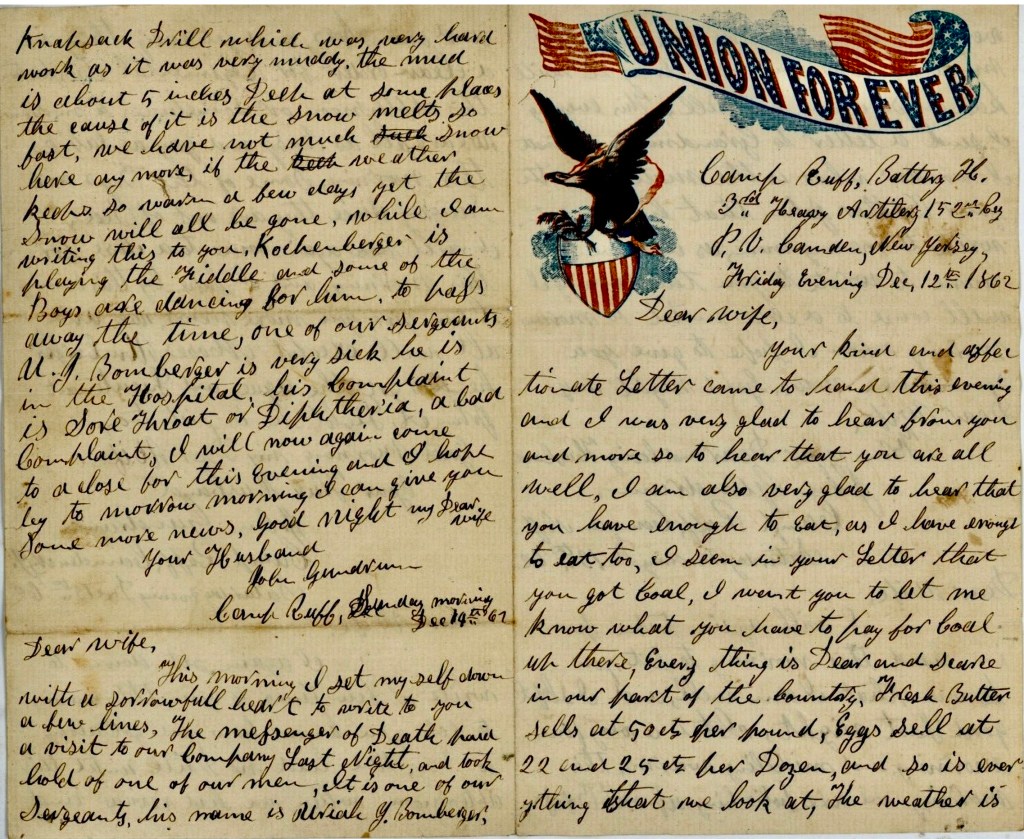 UNION FOREVER
Camp Ruff, Battery H.
3rd Heavy Artillery 152nd Reg
P. V. Camden, New Jersey,
Friday Evening Dec, 12th 1862
Dear wife,
Your kind and affec
tionate Letter came to hand this evening
and I was very glad to hear from you
and more so to hear that you are all
well, I am also very glad to hear that
you have enough to Eat, as I have enough
to eat too, I seem in your Letter that
you got Coal, I want you to let me
know what you have to pay for Coal
up there, Every thing is Dear and Scarse
in our part of the Country, Fresh Butter
sells at 50 cts per pound, Eggs sell at
22 and 25 cts per Dozen, and so is ever
ything that we look at, The weather is
Knapsack Drill which was very hard
work as it was very muddy, the mud
is about 5 inches Deep at some places
the cause of it is the snow melts so
fast, we have not much such snow
here any more, if the weather
keeps so warm a few days yet the
Snow will all be gone, while I am
writing this to you, Kochenberger is
playing the Fiddle and some of the
Boys are dancing for him, to pass
away the time, one of our Sergeants
U. Y. Bomberger is very sick he is
in the Hospital, his Complaint
is Sore Throat or Diphtheria, a bad
Complaint, I will now again come
to a close for this Evening and I hope
by to morrow morning I can give you
Some more news, Good Night my Dear
wife
Your Husband
John Gundrum
Camp Ruff, Sunday morning
Dec 14th 62
Dear wife,
This morning I set my self down
with a sorrowfull heart to write to you
a few lines, The messenger of Death paid
a visit to our Company Last Night, and took
hold of one of our men, It is one of our
Sergeants, his name is Uriah Y. Bomberger,